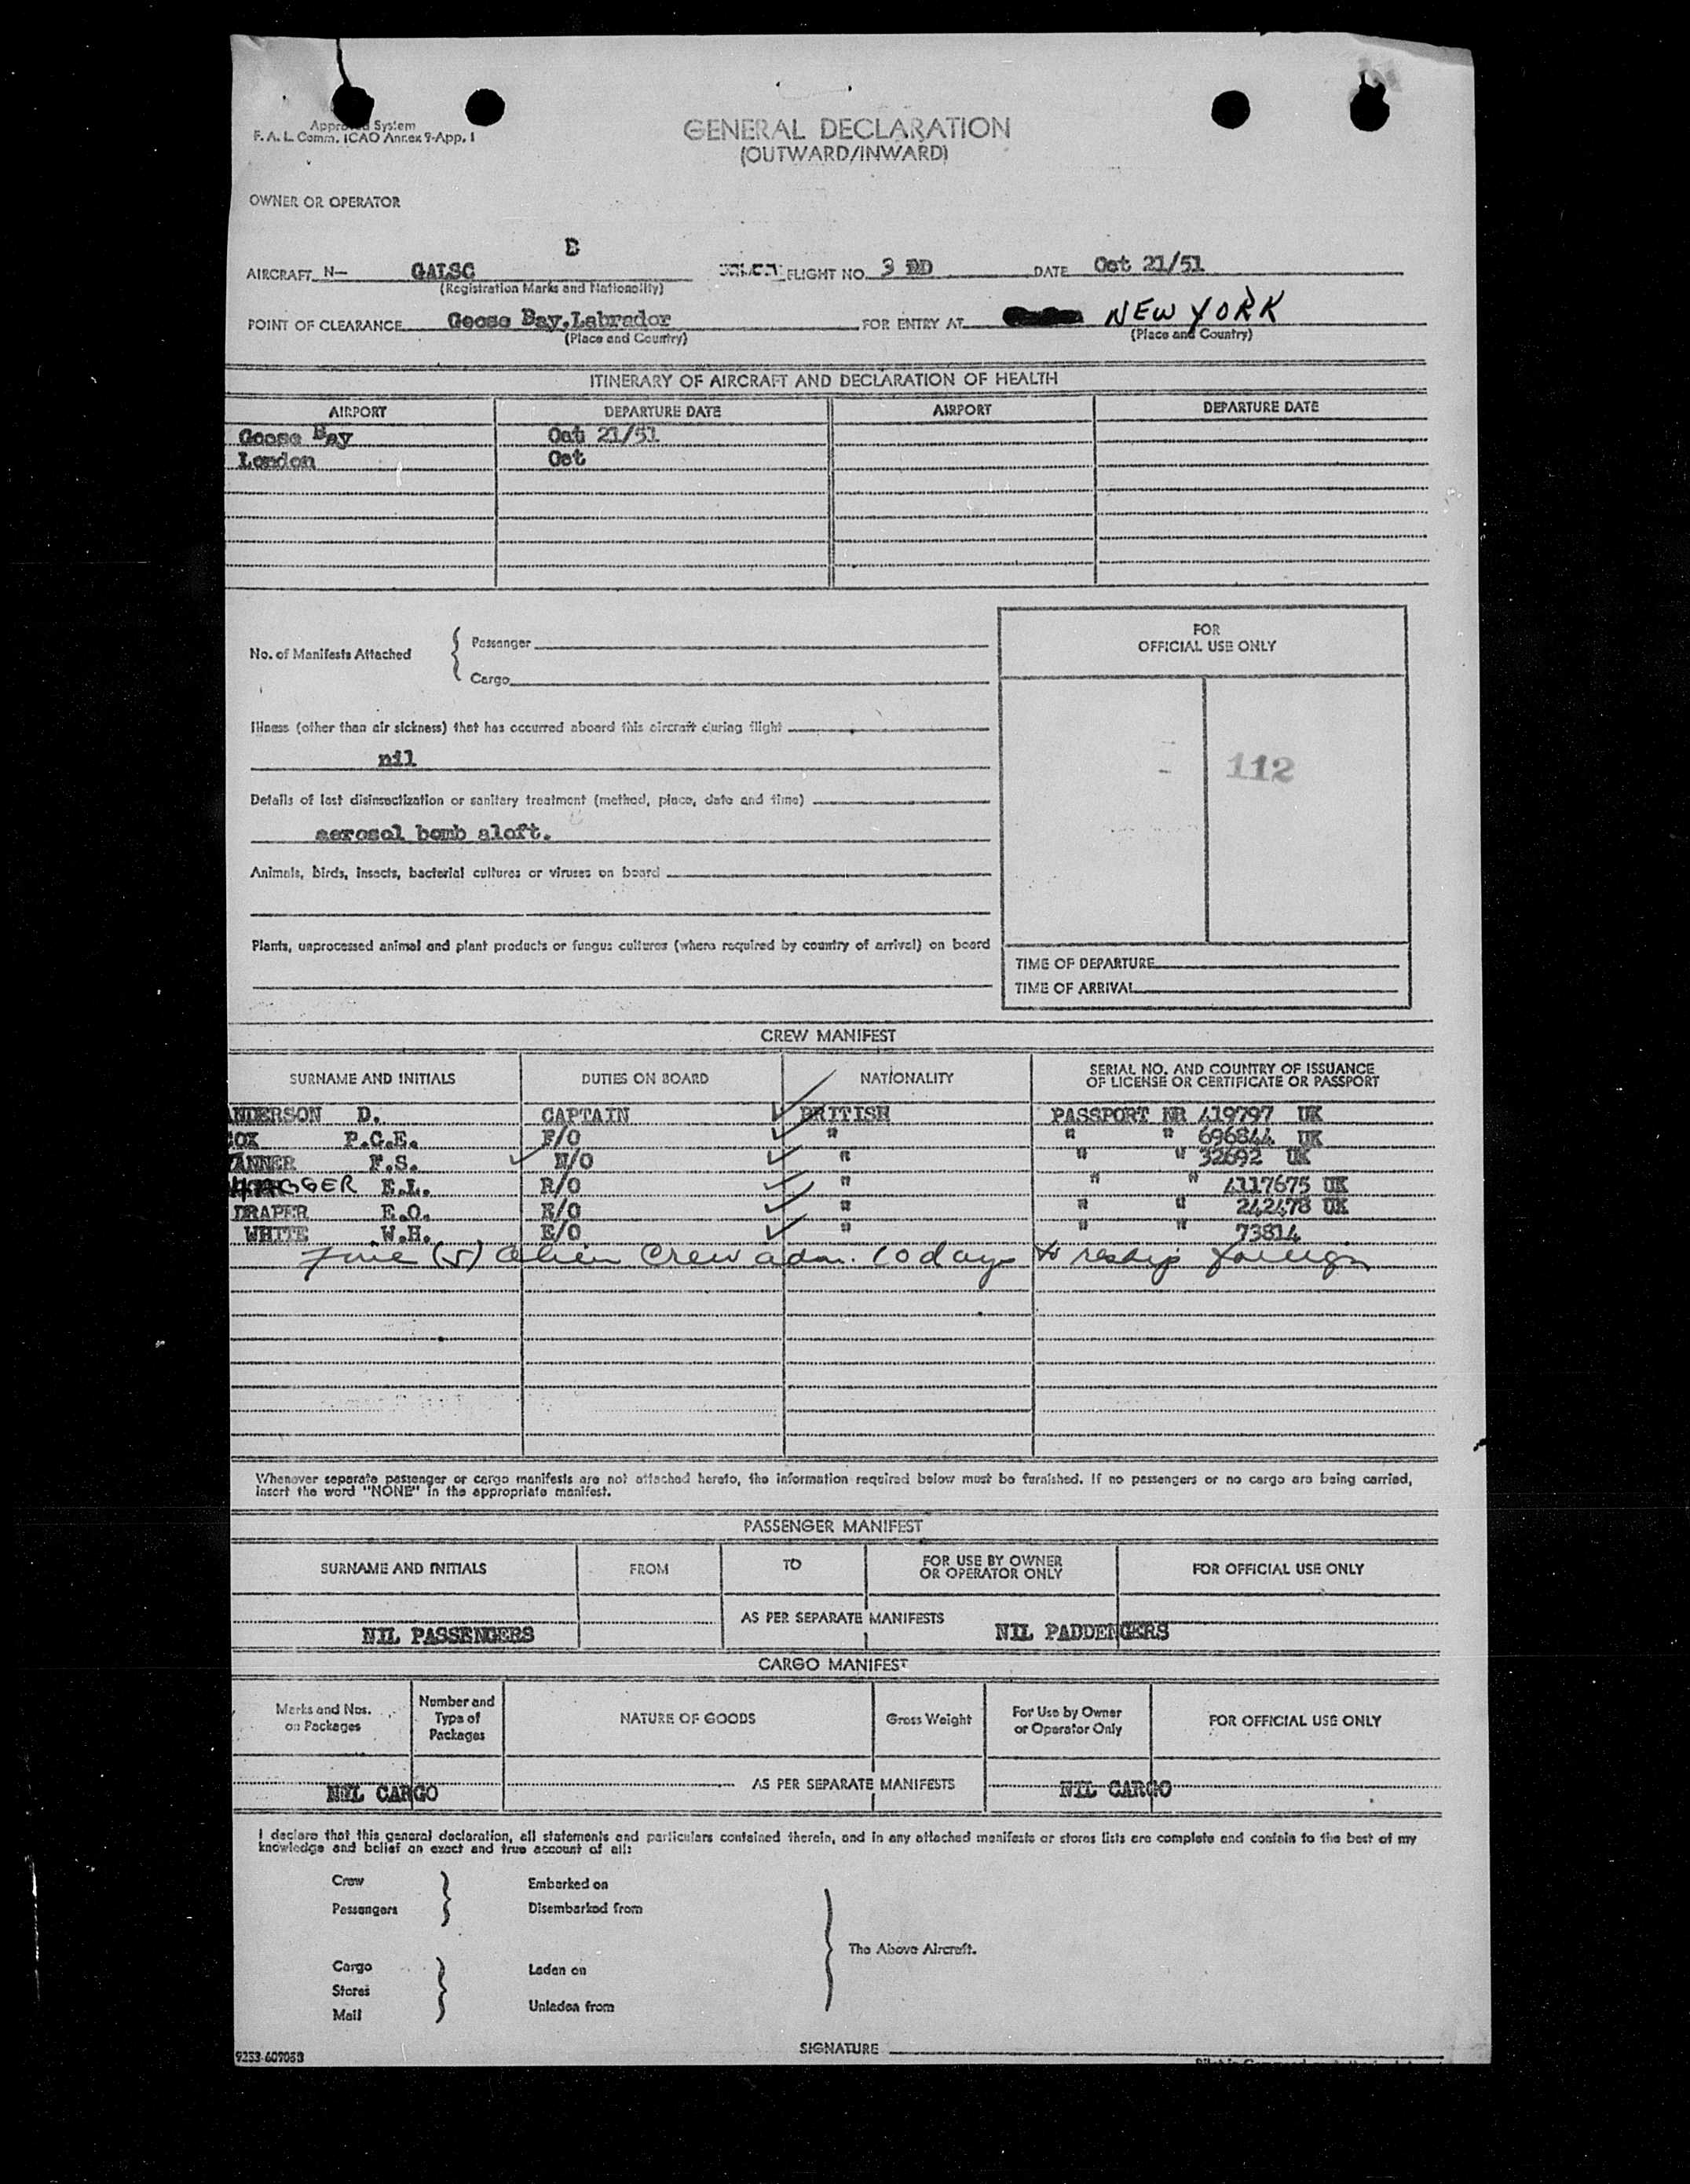 Approved System
F. A. L. Comm. ICAO Annex 9-App. 1
GENERAL DECLARATION
(OUTWARD/INWARD)
OWNER OR OPERATOR
B
AIRCRAFT N- GALSC FLIGHT NO. 3 BD DATE Oct 21/51
(Registration Marks and Nationality)
POINT OF CLEARANCE Goose Bay, Labrador FOR ENTRY AT NEW YORK
(Place and Country) (Place and Country)
ITINERARY OF AIRCRAFT AND DECLARATION OF HEALTH
AIRPORT DEPARTURE DATE AIRPORT DEPARTURE DATE
Goose Bay Oct 21/51
London Oct
No. of Manifests Attached { Passenger
Cargo
FOR
OFFICIAL USE ONLY
Illness (other than air sickness) that has occurred aboard this aircraft during flight
nil
112
Details of last disinsectization or sanitary treatment (method, place, date and time)
aerosol bomb aloft.
Animals, birds, insects, bacterial cultures or viruses on board
Plants, unprocessed animal and plant products or fungus cultures (where required by country of arrival) on board
TIME OF DEPARTURE
TIME OF ARRIVAL
CREW MANIFEST
SURNAME AND INITIALS DUTIES ON BOARD NATIONALITY SERIAL NO. AND COUNTRY OF ISSUANCE
OF LICENSE OR CERTIFICATE OR PASSPORT
ANDERSON D. CAPTAIN BRITISH PASSPORT NR 419797 UK
COX P.C.E. F/O " " " 696844 UK
TANNER F.S. N/O " " " 32692 UK
E.L. R/O " " " 4117675 UK
DRAPER E.O. E/O " " " 242478 UK
WHITE W.H. E/O " " " 73814
Five (5) Alien Crew adm. 10 days to reship foreign
Whenever seperate passenger or cargo manifests are not attached hereto, the information required below must be furnished. If no passengers or no cargo are being carried,
insert the word "NONE" in the appropriate manifest.
PASSENGER MANIFEST
SURNAME AND INITIALS FROM TO FOR USE BY OWNER
OR OPERATOR ONLY FOR OFFICIAL USE ONLY
AS PER SEPARATE MANIFESTS
NIL PASSENGERS NIL PADDENGERS
CARGO MANIFEST
Marks and Nos.
on Packages Number and
Type of
Packages NATURE OF GOODS Gross Weight For Use by Owner
or Operator Only FOR OFFICIAL USE ONLY
AS PER SEPARATE MANIFESTS
NIL CARGO NIL CARGO
I declare that this general declaration, all statements and particulars contained therein, and in any attached manifests or stores lists are complete and contain to the best of my
knowledge and belief an exact and true account of all:
Crew Embarked on
Passengers Disembarked from
The Above Aircraft.
Cargo Laden on
Stores
Mail Unladen from
SIGNATURE
9253-60905B